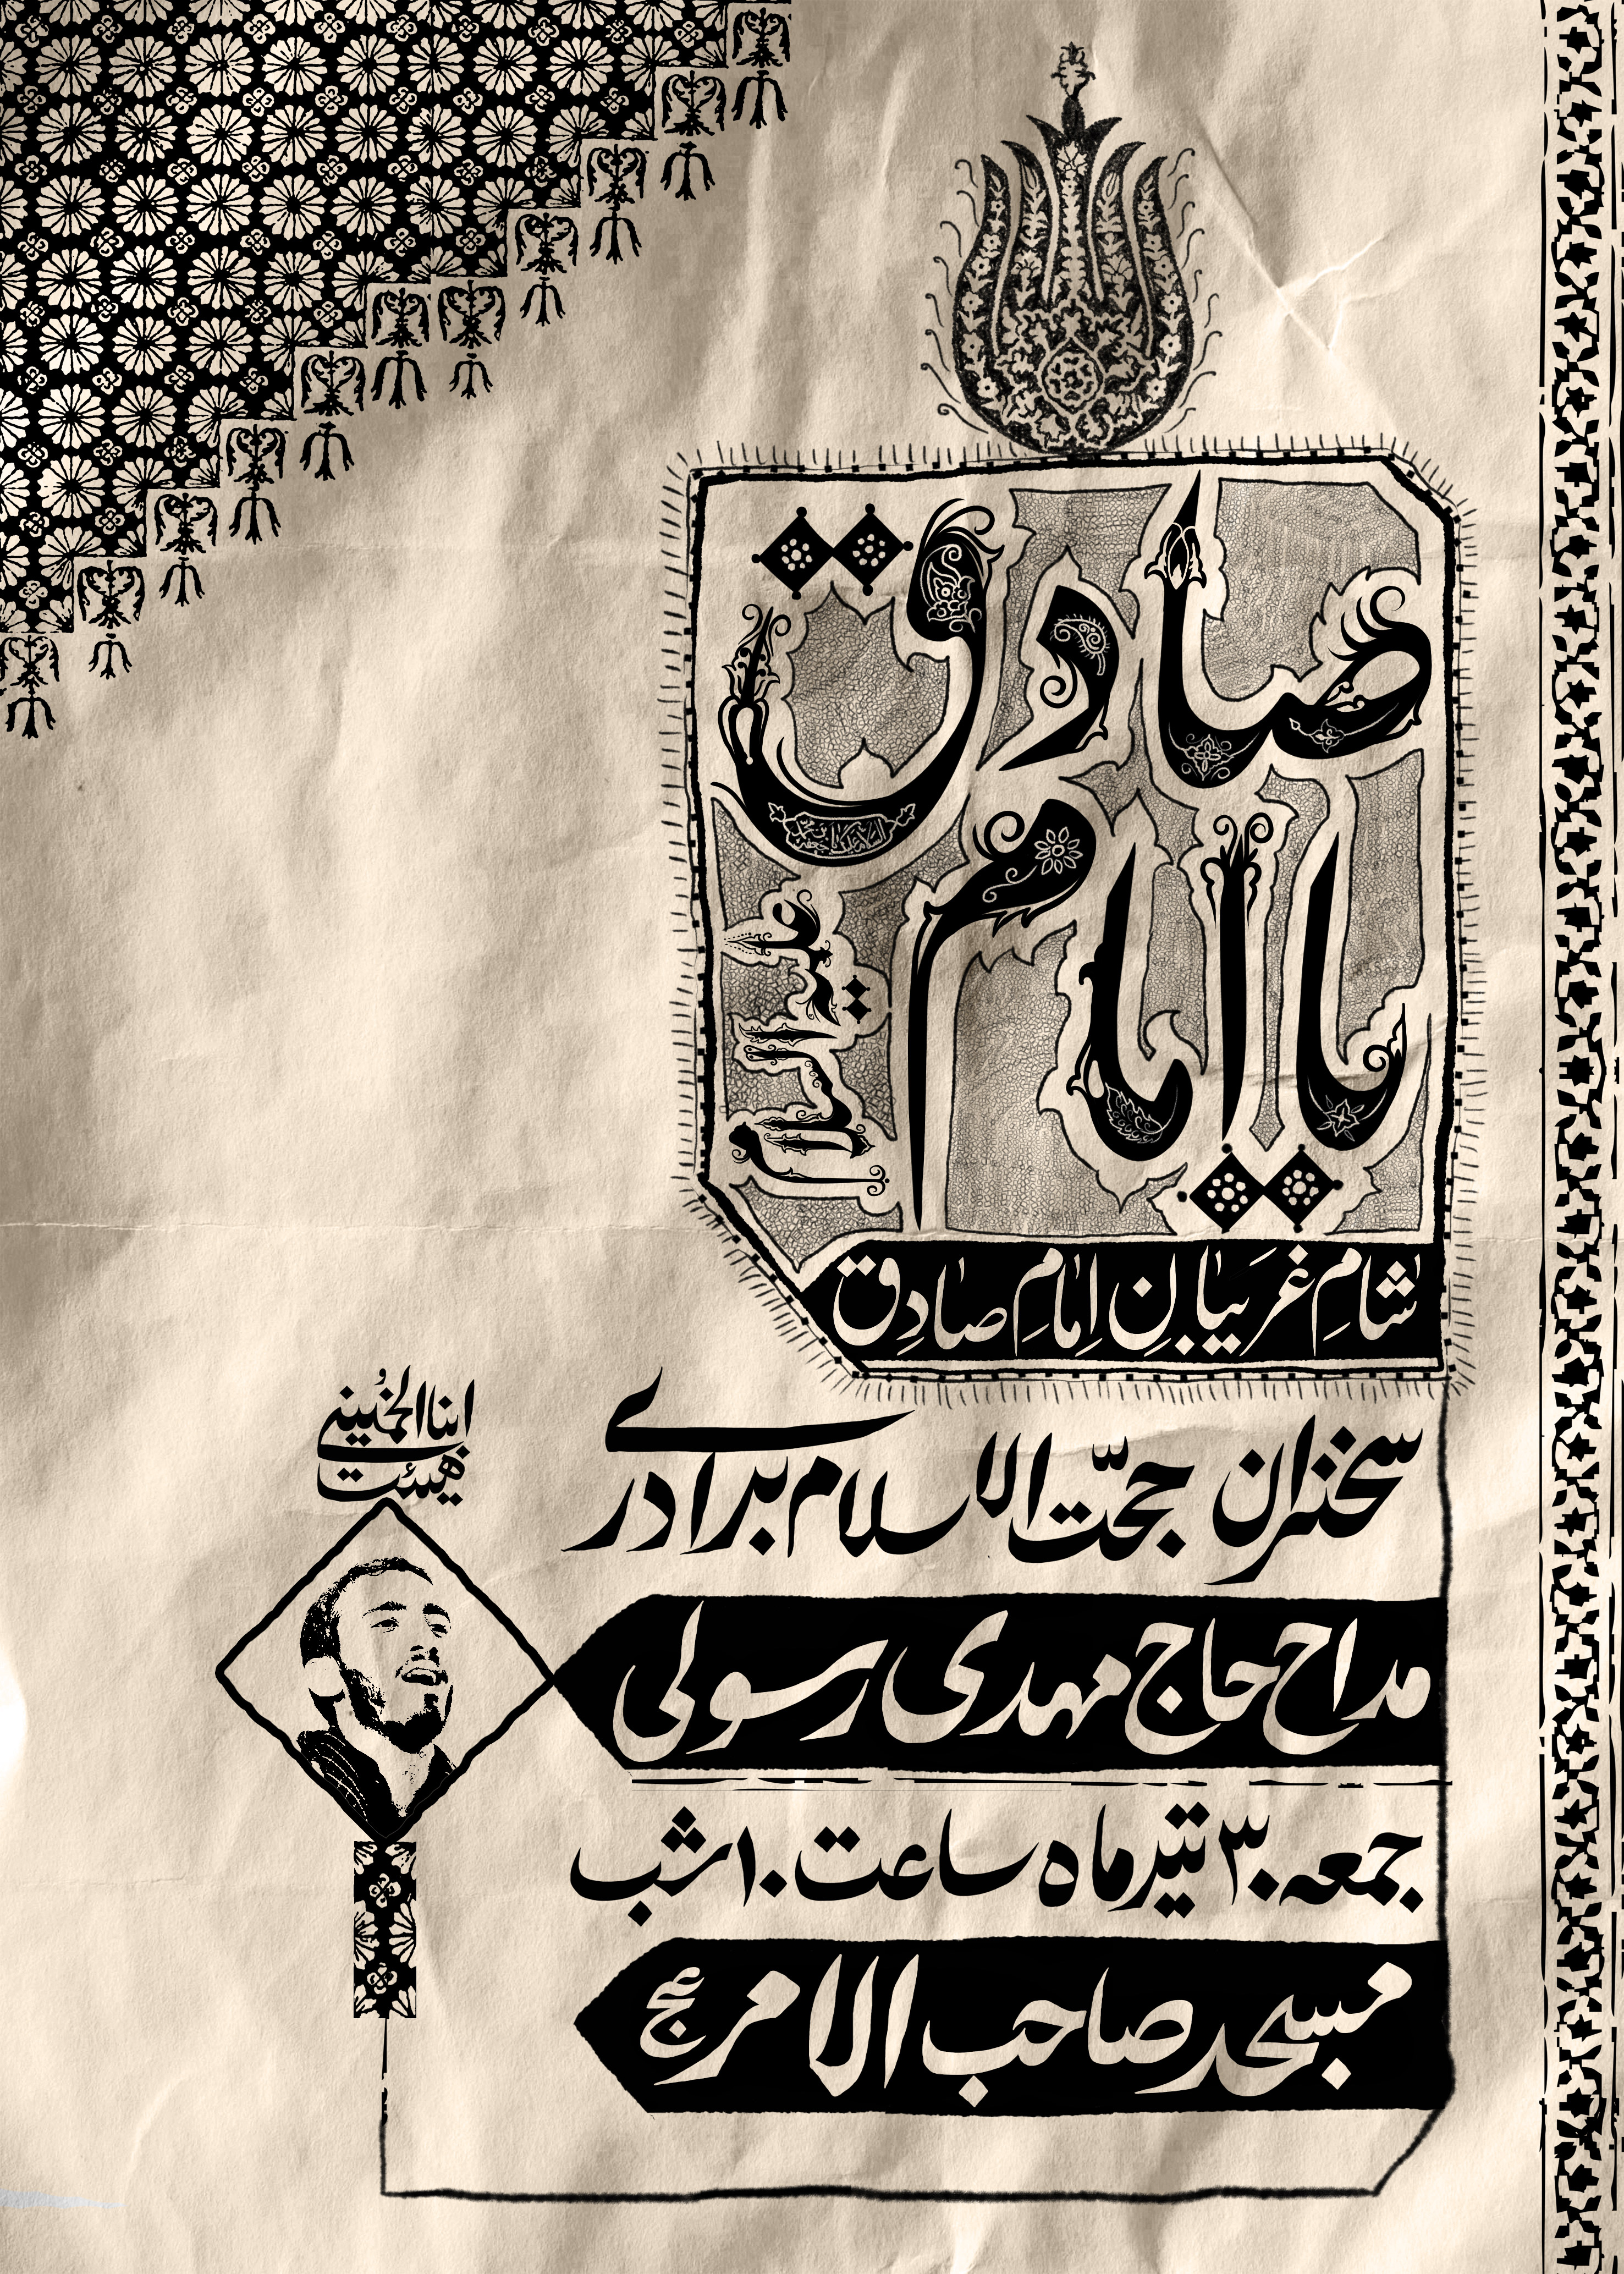 یا امام
صادق
علیه السلام
شامِ غَریبانِ اِمامِ صادِق
سخنران حجّت الاسلام برادری
مداح حاج مهدی رسولی
جمعه ۳۰ تیرماه ساعت ۱۰ شب
مسجد صاحب الامر عج
هیئت
ابناالخُمینی